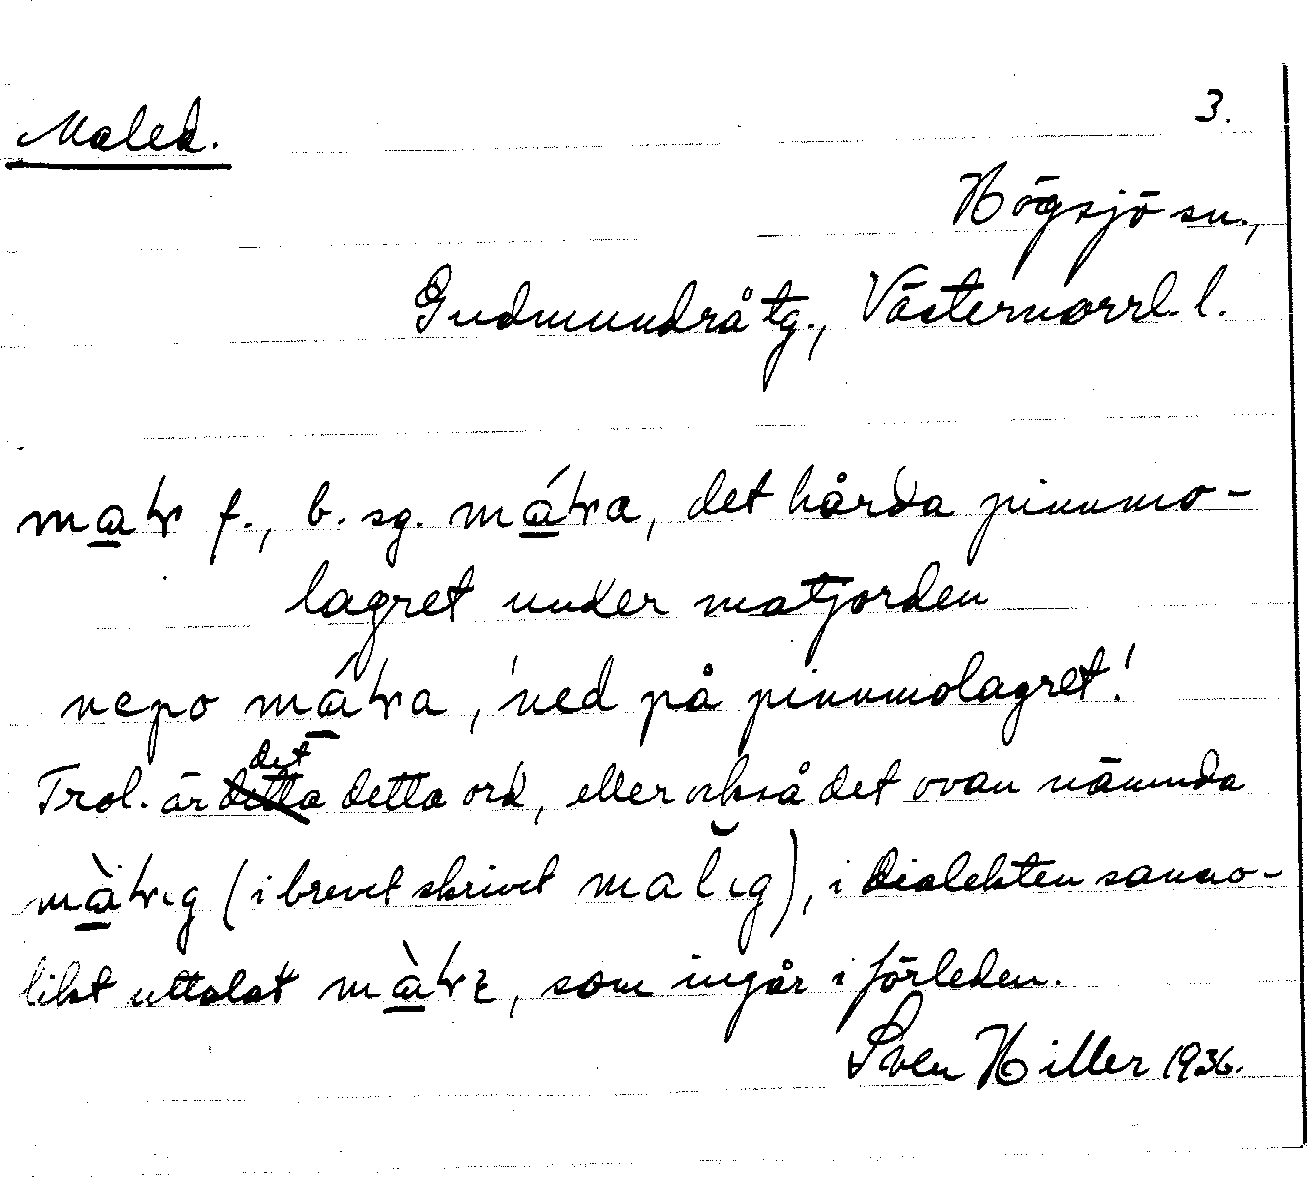 Maled.
3.
Högsjö sn.,
Gudmundrå tg., Västernorrl. l.
det hårda pinnmo-
lagret under matjorden
nepo 'ned på pinnmolagret'
Trol. är det detta ord, eller också det ovan nämnda
(i brevet skrivet malig), i dialekten sanno-
likt uttalat som ingår i förleden.
Sven Hiller 1936.